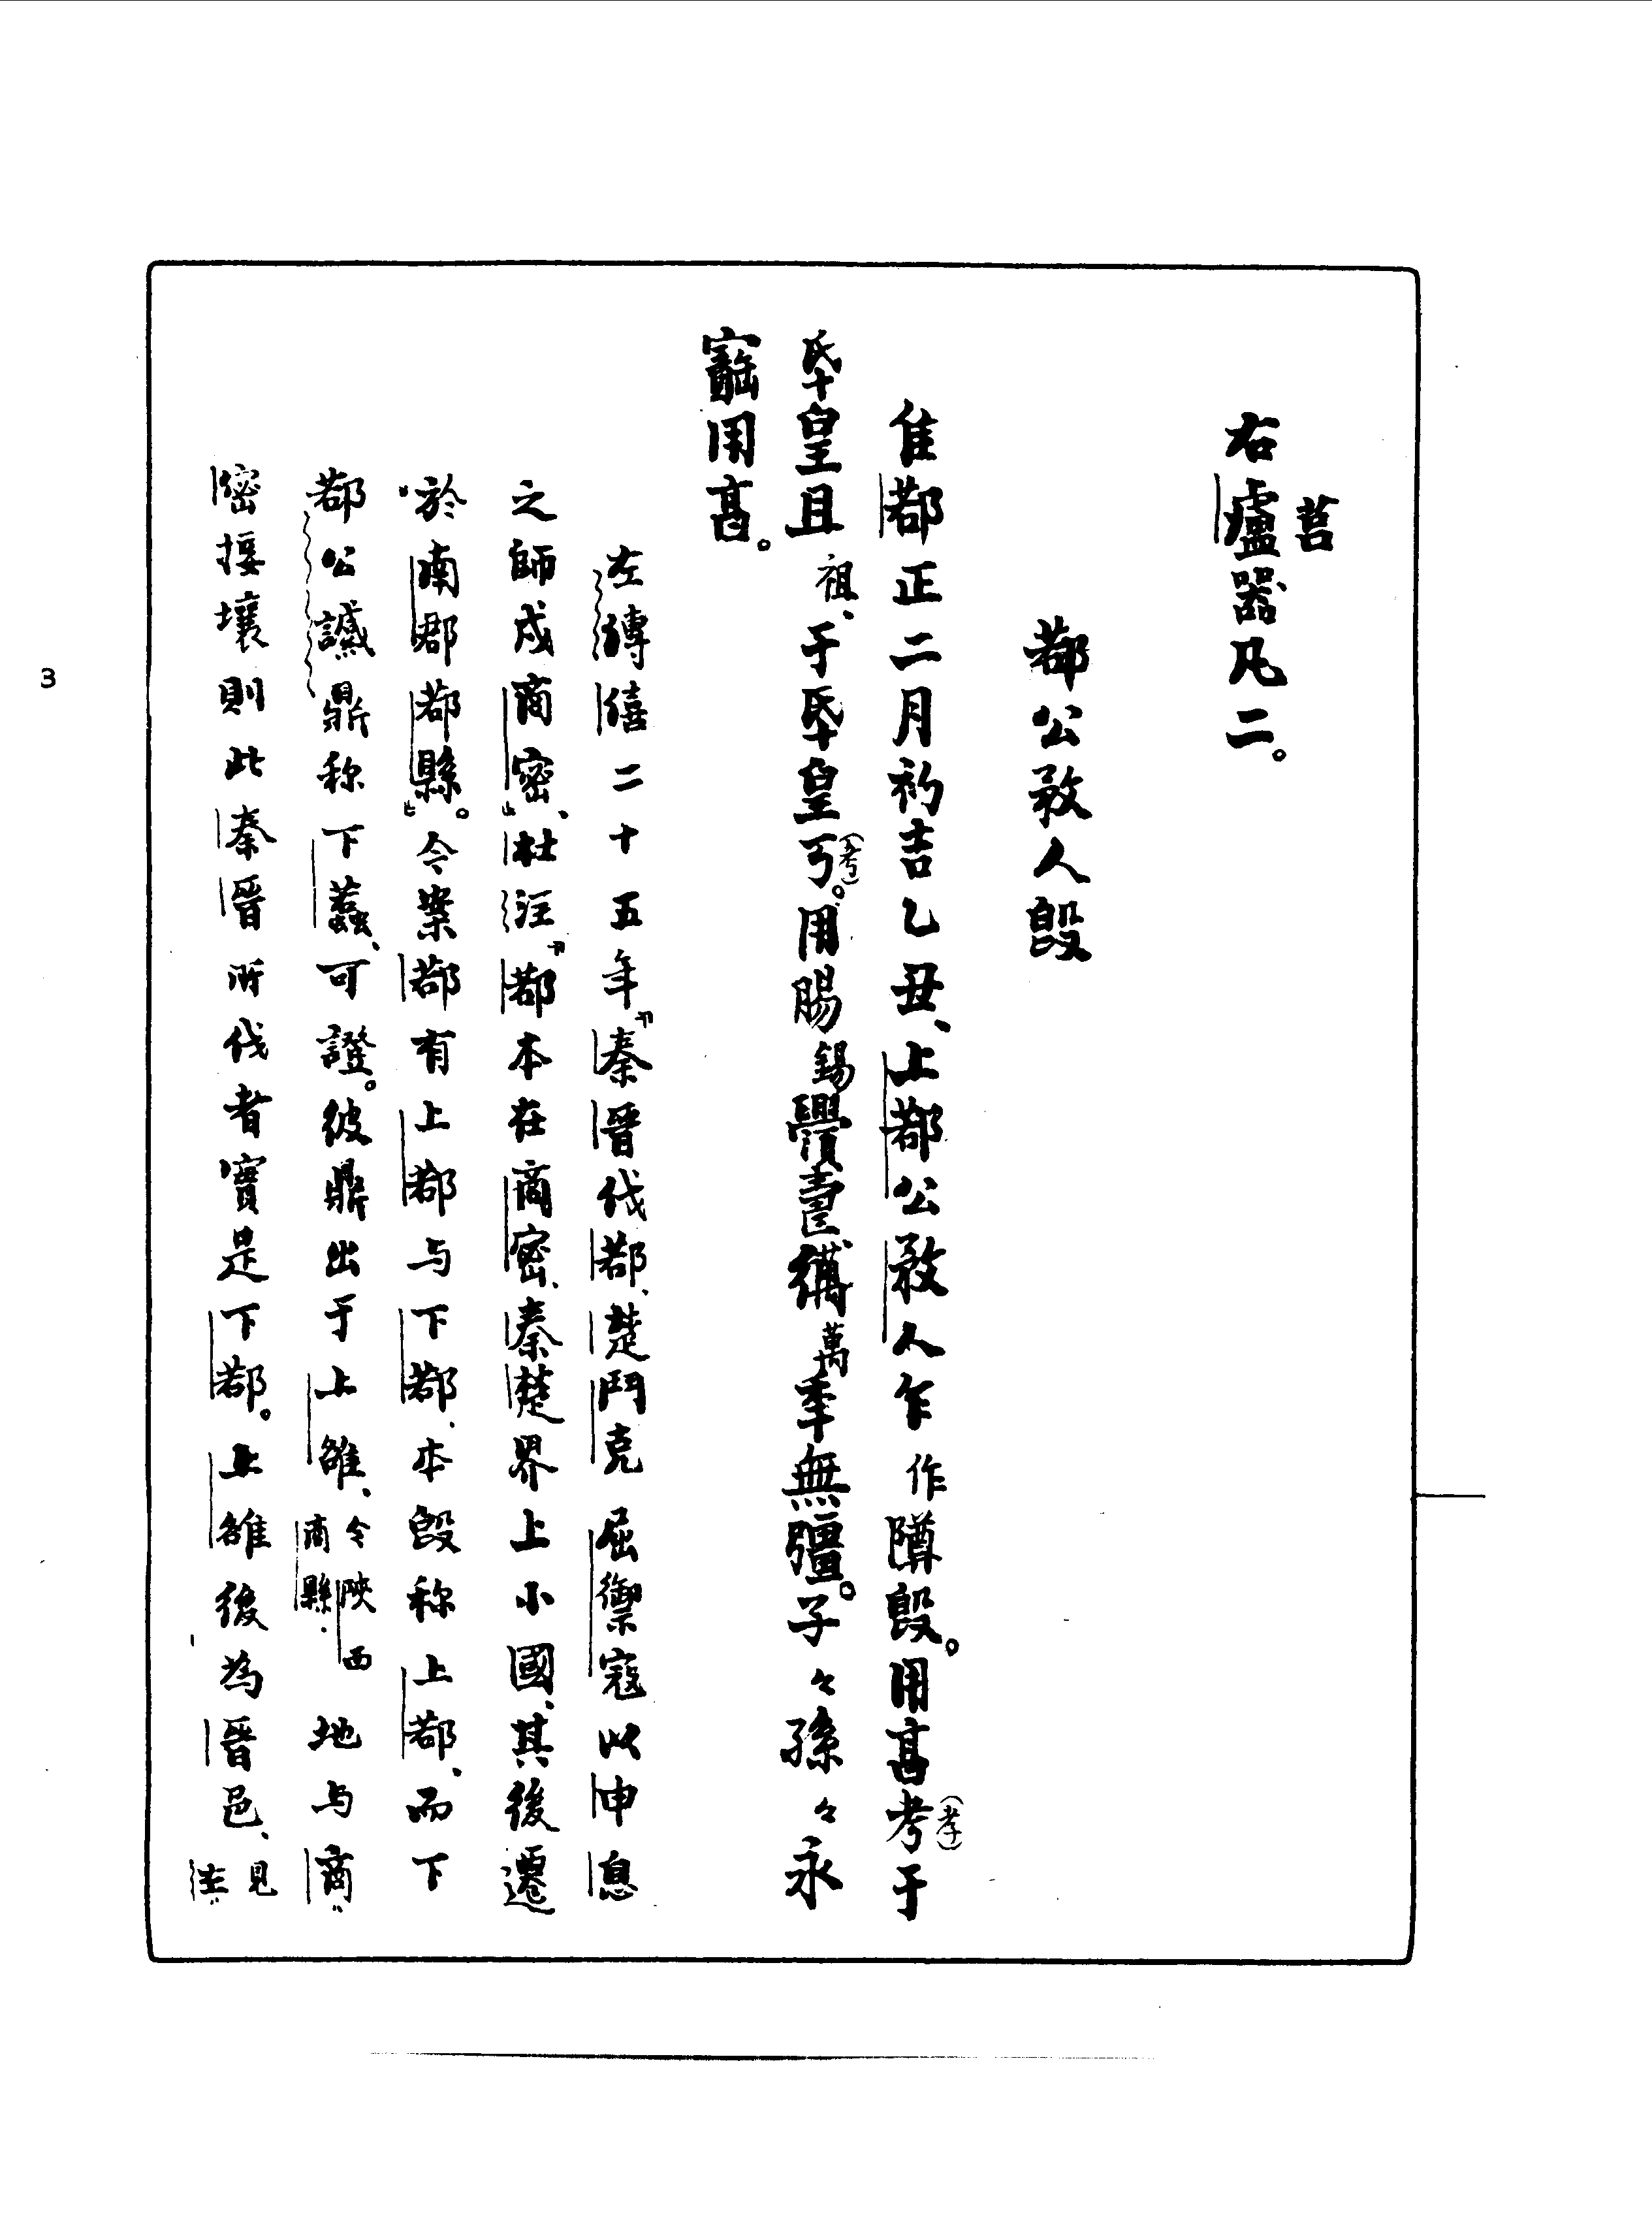 右𥃝器凡二。
莒
鄀公敄人𣪘
隹鄀正二月初吉乙丑、上鄀公敄人乍作䵼𣪘。用亯考(孝)于
氒皇且祖、于氒皇丂(考)。用賜錫釁壽䜌萬年無彊。子々孫々永
寶用亯。
左傳僖二十五年「秦晉伐鄀、楚鬥克屈禦寇以申息
之師戍商密」、杜注「鄀本在商密、秦楚界上小國、其後遷
於南郡鄀縣」。今案鄀有上鄀与下鄀、本𣪘称上鄀、而下
鄀公諴鼎称下蠚、可證。彼鼎出于上雒、今陝西商縣.地与商
密接壤則此秦晉所伐者實是下鄀。上雒後為晉邑、見左
3